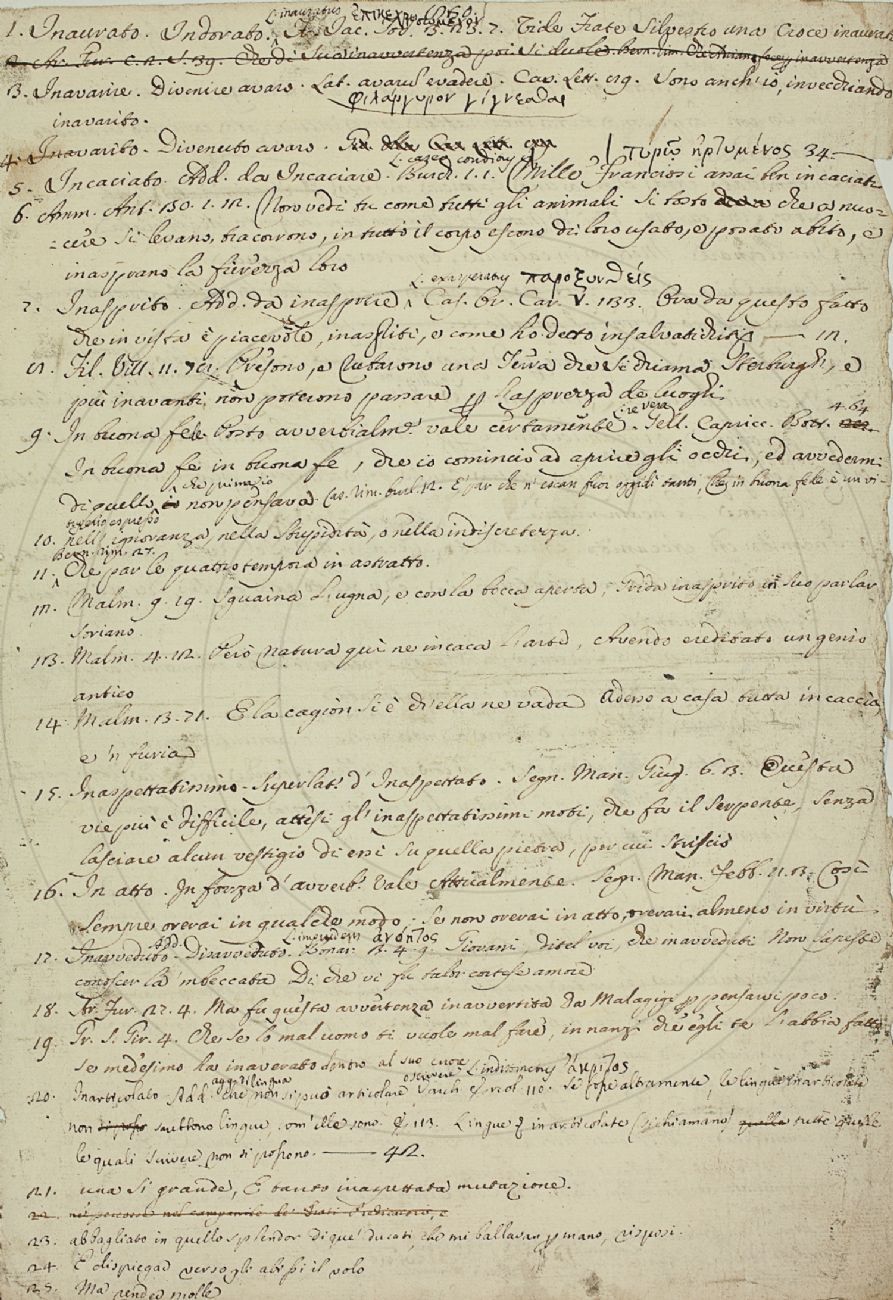 L. inauratus ἐπικεχρυσωμένον
1. Inaurato. Indorato. Fr. Jac. Tod. 3. 23. 7. Vide Frate Silvestro una Croce inaurata
2. Ar. Fur. C. 2. S. 39. Che di sua inavvertenza poi si duole. Bern. rim. inavvertenza
3. Inavarire. Divenire avaro. Lat. avarus evadere. Cav. Lett. 19. Sono anch'io, invecchiando
φιλάργυρον γίγνεσθαι
inavarito.
4. Inavarito. Divenuto avaro.
L. caseo conditus τυρῷ ἠρτυμένος 34.
5. Incaciato. Add. da Incaciare. Burch. 1. 1. Mille Franciosi assai ben incaciati
6. Amm. Ant. 30. 1. 12. Non vedi tu come tutti gli animali si tosto che a nuo-
cere si levano, tracorrono, in tutto il corpo escono di loro usato, e posato abito, e
inasprano la fierezza loro
L. exasperatus παροξυνθείς
7. Inasprito. Add. da inasprire. Cas. Or. Car. V. 133. Ora da questo fatto
che in vista è piacevole, inaspriti, e come ho detto insalvatichiti 12.
8. Fil. Vill. 11. Presono, e rubarono una Terra che si chiama Sterburgh, e
più inavanti non poterono passare p l'asprezza de luoghi.
9. In buona fede Posto avverbialm. vale certamente. L. re vera. Gell. Capricc. Bott. 4. 64
In buona fe in buona fe, che io comincio ad aprire gli occhi, ed avvedermi
che prima io
di quello non pensava. Cas. rim. burl. 12. E' par che n'escan fuor oggidì tanti, Che in buona fede è un vi-
tuperio espresso
10. nell'ignoranza, nella stupidità, o nella indiscretezza.
Bern. rim. 27.
11. Che par le quattro tempora in astratto.
12. Malm. 9. 19. Sguaina l'ugna, e con la bocca aperta, Grida inasprito in suo parlar
soriano.
13. Malm. 4. 12. Però Natura quì ne incaca l'arte, Avendo ereditato un genio
antico
14. Malm. 13. 71. E la cagion si è ch'ella ne vada Adesso a casa tutta in caccia
e 'n furia
15. Inaspettatissimo. Superlat. d'Inaspettato. Segn. Man. Giug. 6. 3. Questa
vie più è difficile, attesi gl'inaspettatissimi moti, che fa il Serpente, senza
lasciare alcun vestigio di essi su quella pietra, per cui strisciò
16. In atto. In forza d'avverb. Vale Attualmente. Segn. Man. Febb. 11. 3. Così
sempre orerai in qualche modo; se non orerai in atto, orerai almeno in virtù.
Add. L. improvidus ἀνόητος
17. Inavveduto. Disavveduto. Bonar. 4. 9. Giovani, ditel voi, che inavveduti Non sapeste
conoscer la imbeccata Di che vi fu talor cortese amore
18. Ar. Fur. 27. 4. Ma fu questa avvertenza inavvertita Da Malagigi p pensarvi poco.
19. Fr. S. Gir. 4. Che se lo mal uomo ti vuole mal fare, innanzi che egli te l'abbia fatto
se medesimo ha inaverato dentro al suo cuore
20. Inarticolato Add. aggett. lingua che non si può articolare, o scrivere. Varch. Ercol. 110. Se fosse altramente, le lingue inarticolate
non sarebbono lingue, com'elle sono. E 113. Lingue inarticolate si chiamano tutte quelle
le quali scrivere non si possono. 42.
21. una si grande, E tanto inaspettata mutazione.
22. nè percosso nel campanile de' Frati Predicatori, e
23. abbagliato in quello splendor di que' ducati, che mi ballavan p mano, risposi.
24. E dispiegar verso gli abissi il volo
25. Ma rendea molle